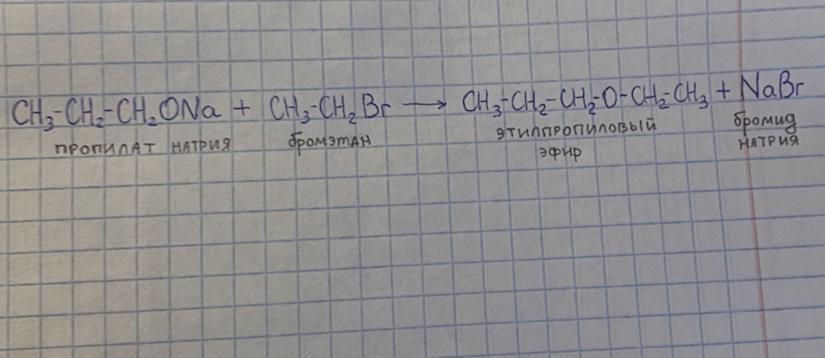 CH₃-CH₂-CH₂ONa + CH₃-CH₂Br → CH₃-CH₂-CH₂-O-CH₂-CH₃ + NaBr
пропилат натрия бромэтан этилпропиловый бромид
эфир натрия